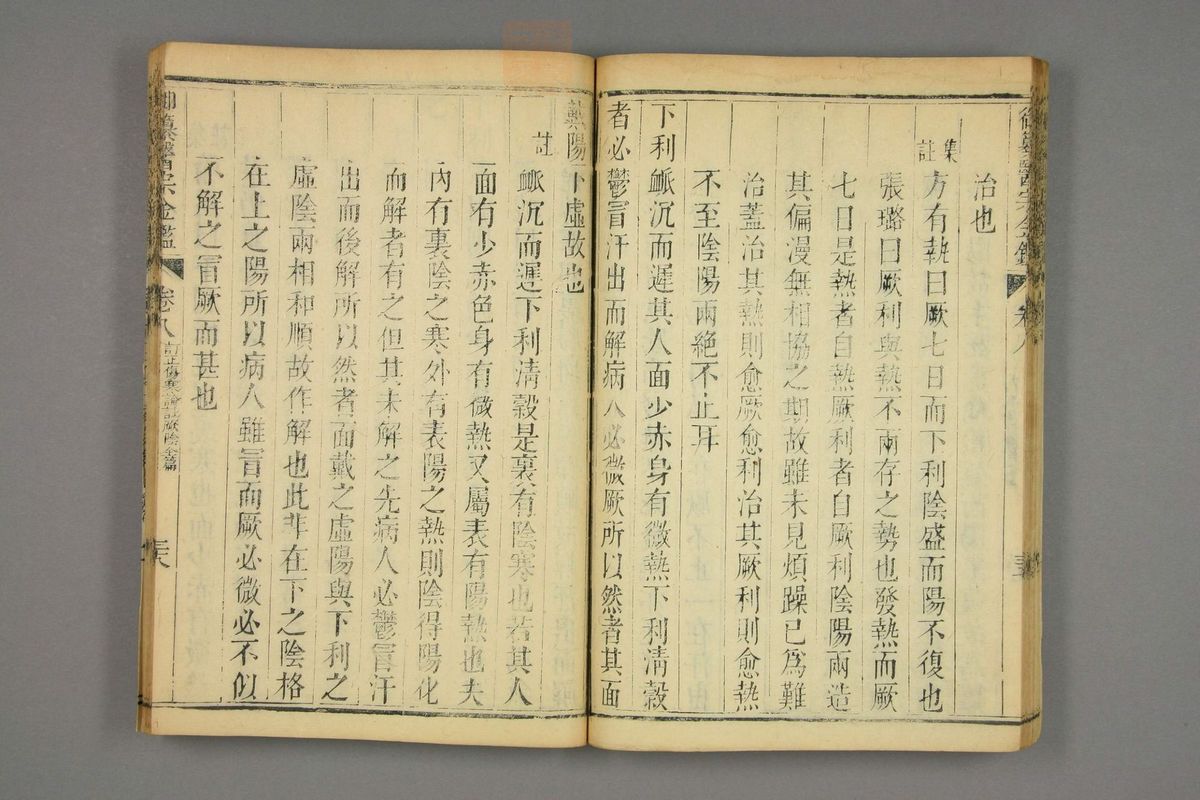 御纂醫宗金鑑 卷八
治也
集註
方有執曰厥七日而下利陰盛而陽不復也
張璐曰厥利與熱不兩存之勢也發熱而厥
七日是熱者自熱厥利者自厥利陰陽兩造
其偏漫無相協之期故雖未見煩躁已為難
治蓋治其熱則愈厥愈利治其厥利則愈熱
不至陰陽兩絕不止耳
下利脈沉而遲其人面少赤身有微熱下利清穀
者必鬱冒汗出而解病人必微厥所以然者其面
戴陽下虛故也
註
脈沉而遲下利清穀是裏有陰寒也若其人
面有少赤色身有微熱又屬表有陽熱也夫
內有裏陰之寒外有表陽之熱則陰得陽化
而解者有之但其未解之先病人必鬱冒汗
出而後解所以然者面戴之虛陽與下利之
虛陰兩相和順故作解也此非在下之陰格
在上之陽所以病人雖冒而厥必微必不似
不解之冒厥而甚也
御纂醫宗金鑑 卷八 訂正傷寒論註厥陰全篇 三六